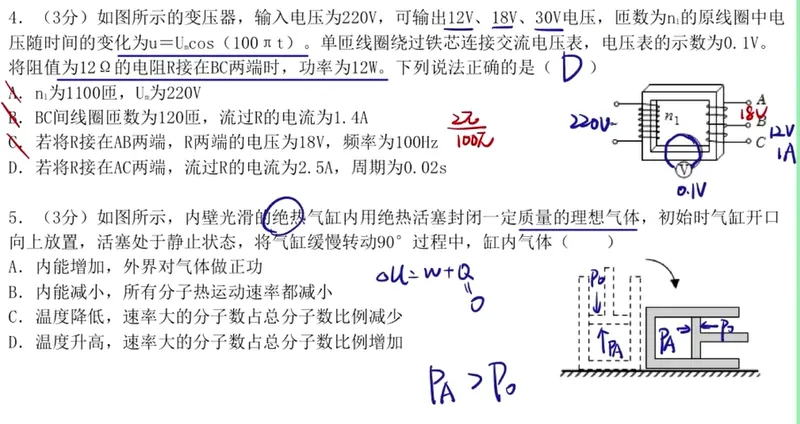 4.（3分）如图所示的变压器，输入电压为220V，可输出12V、18V、30V电压，匝数为n₁的原线圈中电
压随时间的变化为u＝Uₘcos（100πt）。单匝线圈绕过铁芯连接交流电压表，电压表的示数为0.1V。
将阻值为12Ω的电阻R接在BC两端时，功率为12W。下列说法正确的是（ D ）
A．n₁为1100匝，Uₘ为220V
B．BC间线圈匝数为120匝，流过R的电流为1.4A
C．若将R接在AB两端，R两端的电压为18V，频率为100Hz
D．若将R接在AC两端，流过R的电流为2.5A，周期为0.02s
2π
100π
220V
n₁
A
18V
B
12V
C
1A
V
0.1V
5.（3分）如图所示，内壁光滑的绝热气缸内用绝热活塞封闭一定质量的理想气体，初始时气缸开口
向上放置，活塞处于静止状态，将气缸缓慢转动90°过程中，缸内气体（　　）
A．内能增加，外界对气体做正功
B．内能减小，所有分子热运动速率都减小
C．温度降低，速率大的分子数占总分子数比例减少
D．温度升高，速率大的分子数占总分子数比例增加
ΔU=W+Q
0
P₀
PA
PA
P₀
PA>P₀